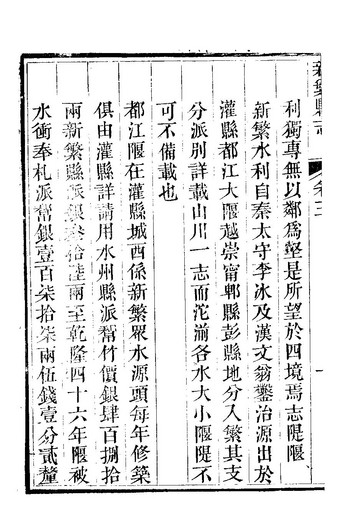 新繁縣志
卷三
利獨專無以鄰爲壑是所望於四境焉志隄堰
新繁水利自秦太守李冰及漢文翁鑿治源出於
灌縣都江大堰越崇甯郫縣彭縣地分入繁其支
分派別詳載山川一志而沱湔各水大小堰隄不
可不備載也
都江堰在灌縣城西係新繁眾水源頭每年修築
俱由灌縣詳請用水州縣派幫竹價銀肆百捌拾
兩新繁縣派銀叄拾陸兩至乾隆四十六年堰被
水衝奉札派幫銀壹百柒拾柒兩伍錢壹分貳釐